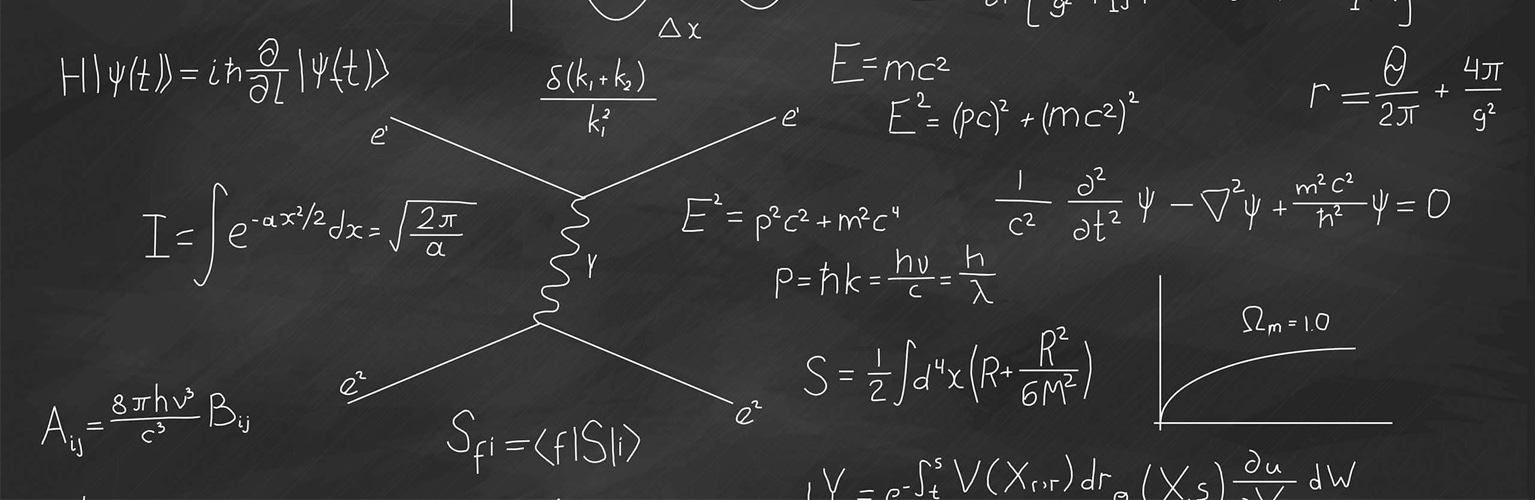 Δx
H|ψ(t)⟩⟩=iħ ∂/∂t |ψ(t)⟩
δ(k₁+k₂)/k₁²
E=mc²
r=θ/2π + 4π/g²
E²=(pc)²+(mc²)²
e¹
e¹
I=∫e^(-ax²/2)dx=√(2π/a)
E²=p²c²+m²c⁴
1/c² ∂²/∂t² ψ − ∇²ψ + m²c²/ħ² ψ = 0
γ
P=ħk=hν/c=h/λ
Ωm=1.0
S=1/2∫d⁴x(R+R²/6M²)
e²
e²
A_ij=8πhν³/c³ B_ij
S_fi=⟨f|S|i⟩
Y=e^-∫_t^s V(X,τ)dτ (X,s) ∂u dW